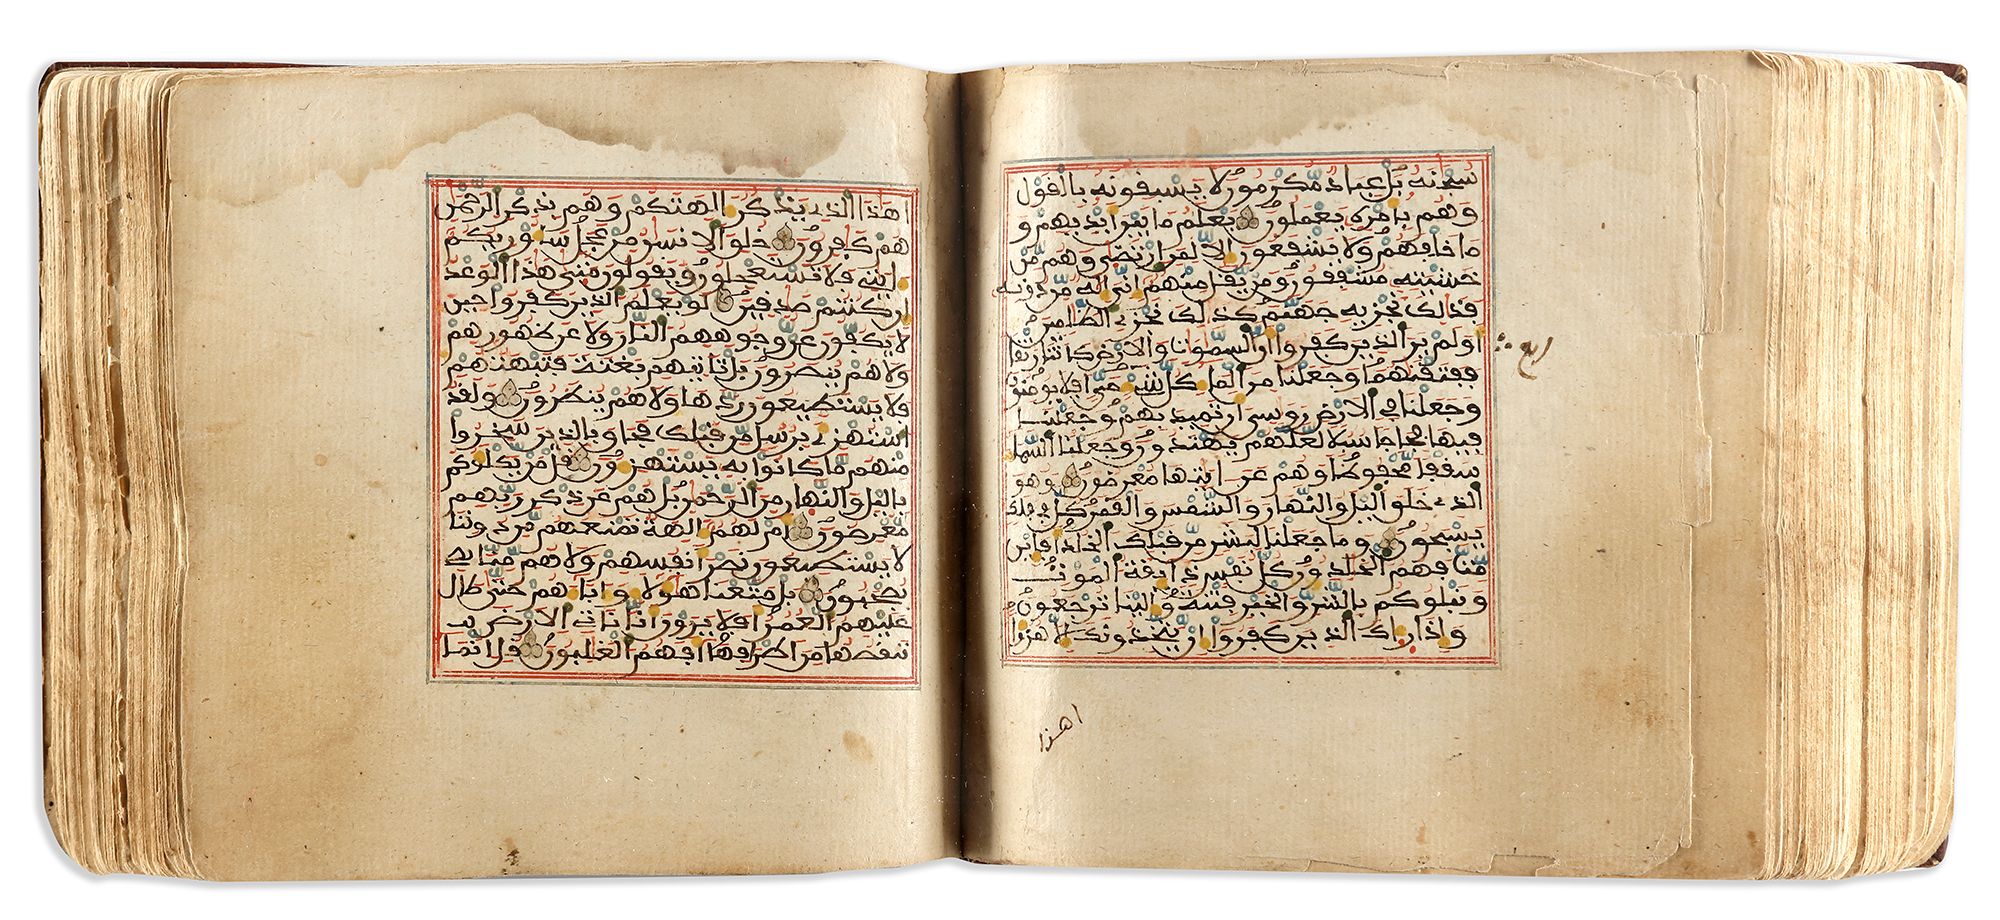 سبحنه بل عباد مكرمون لا يسبقونه بالقول
وهم بامره يعملون يعلم ما بين ايديهم و
ما خلفهم ولا يشفعون الا لمن ارتضى وهم من
خشيته مشفقون ومن يقل منهم اني اله من دونه
فذلك نجزيه جهنم كذلك نجزي الظلمين
اولم ير الذين كفروا ان السموات والارض كانتا رتقا
ففتقنهما وجعلنا من الماء كل شيء حي افلا يومنون
وجعلنا في الارض روسي ان تميد بهم وجعلنا
فيها فجاجا سبلا لعلهم يهتدون وجعلنا السماء
سقفا محفوظا وهم عن ايتها معرضون وهو
الذي خلق اليل والنهار والشمس والقمر كل في فلك
يسبحون وما جعلنا لبشر من قبلك الخلد افاين
متّ فهم الخلدون كل نفس ذايقة الموت
ونبلوكم بالشر والخير فتنة والينا ترجعون
واذا راك الذين كفروا ان يتخذونك الا هزوا
اهذا
اهذا الذي يذكر الهتكم وهم بذكر الرحمن
هم كفرون خلق الانسن من عجل ساوريكم
ايتي فلا تستعجلون ويقولون متى هذا الوعد
ان كنتم صدقين لو يعلم الذين كفروا حين
لا يكفون عن وجوههم النار ولا عن ظهورهم
ولا هم ينصرون بل تاتيهم بغتة فتبهتهم
فلا يستطيعون ردها ولا هم ينظرون ولقد
استهزي برسل من قبلك فحاق بالذين سخروا
منهم ما كانوا به يستهزون قل من يكلوكم
باليل والنهار من الرحمن بل هم عن ذكر ربهم
معرضون ام لهم الهة تمنعهم من دوننا
لا يستطيعون نصر انفسهم ولا هم منا
يصحبون بل متعنا هولاء واباءهم حتى طال
عليهم العمر افلا يرون انا ناتي الارض
ننقصها من اطرافها افهم الغلبون قل انما